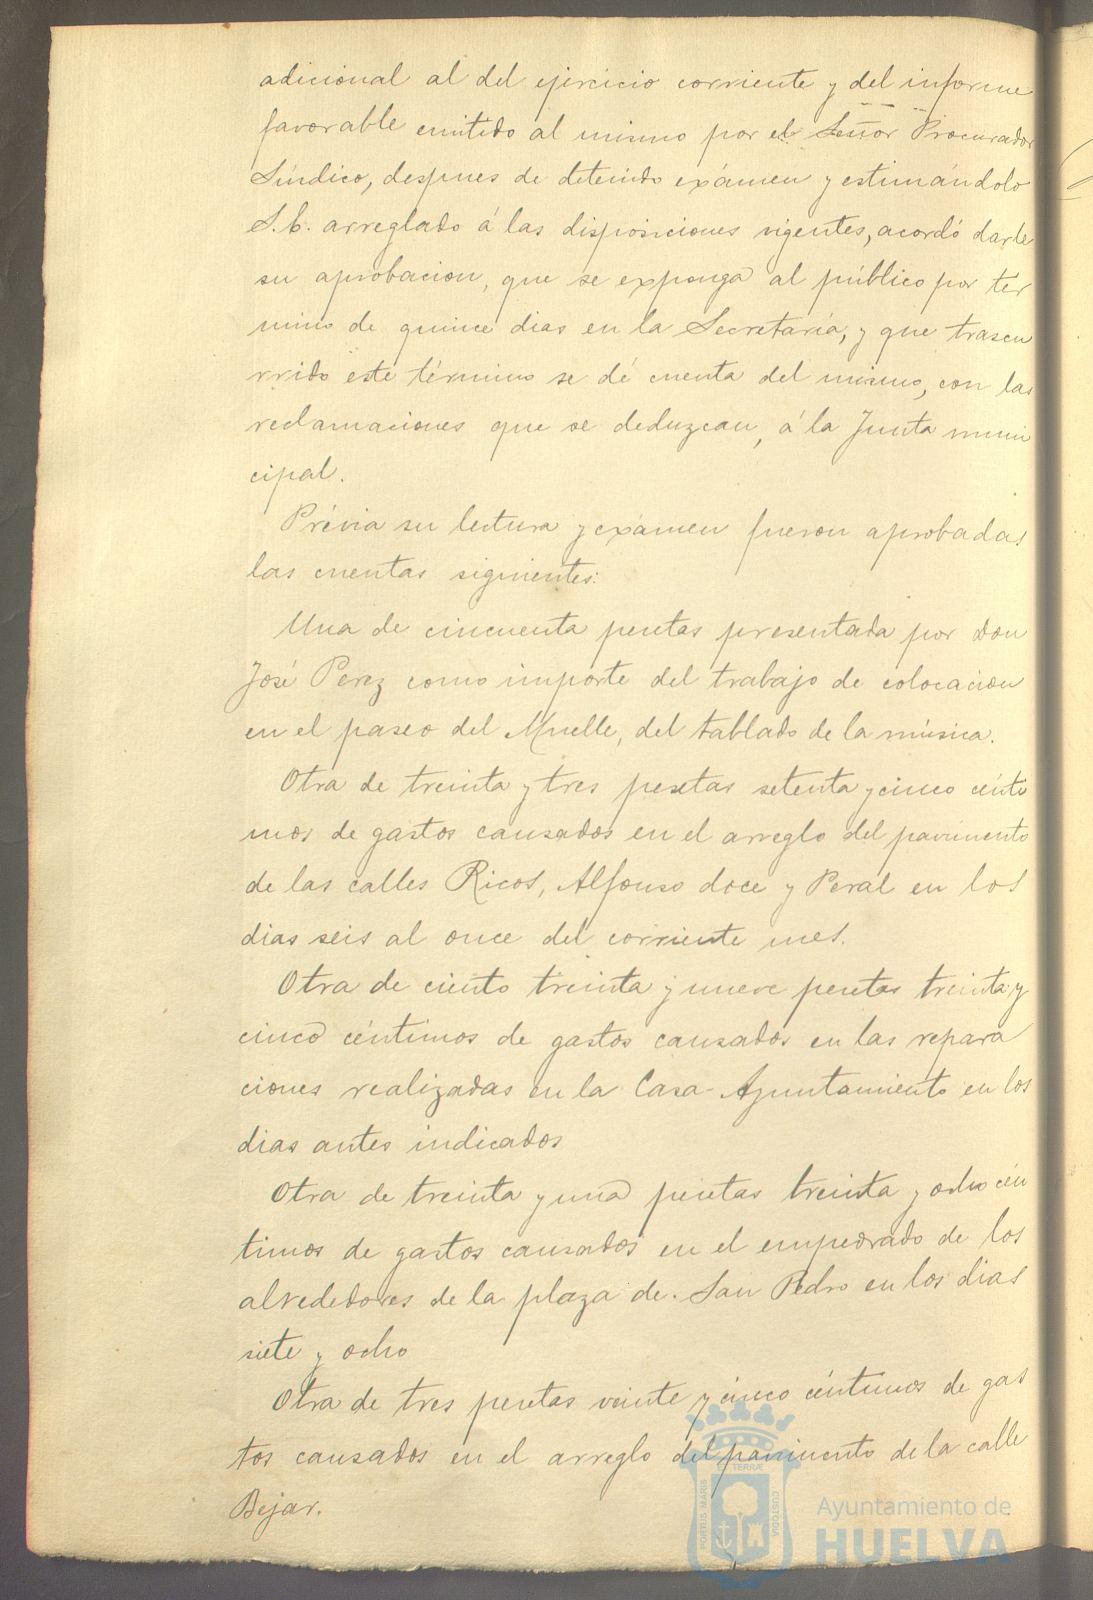 adicional al del ejercicio corriente y del informe
favorable emitido al mismo por el Señor Procurador
Síndico, despues de detenido exámen y estimándolo
S.E. arreglado á las disposiciones vigentes, acordó darle
su aprobacion, que se exponga al público por tér
mino de quince dias en la Secretaría, y que trascu
rrido este término se dé cuenta del mismo, con las
reclamaciones que se deduzcan, á la Junta muni
cipal.
Prévia su lectura y exámen fueron aprobadas
las cuentas siguientes:
Una de cincuenta pesetas presentada por Don
José Perez como importe del trabajo de colocacion
en el paseo del Muelle, del tablado de la música.
Otra de treinta y tres pesetas setenta y cinco cénti
mos de gastos causados en el arreglo del pavimento
de las calles Ricos, Alfonso doce y Peral en los
dias seis al once del corriente mes.
Otra de ciento treinta y nueve pesetas treinta y
cinco céntimos de gastos causados en las repara
ciones realizadas en la Casa Ayuntamiento en los
dias antes indicados
Otra de treinta y una pesetas treinta y ocho cén
timos de gastos causados en el empedrado de los
alrededores de la plaza de San Pedro en los dias
siete y ocho
Otra de tres pesetas veinte y cinco céntimos de gas
tos causados en el arreglo del pavimento de la calle
Bejar.
PORTUS MARIS
TERRÆ
CUSTODIA
Ayuntamiento de
HUELVA